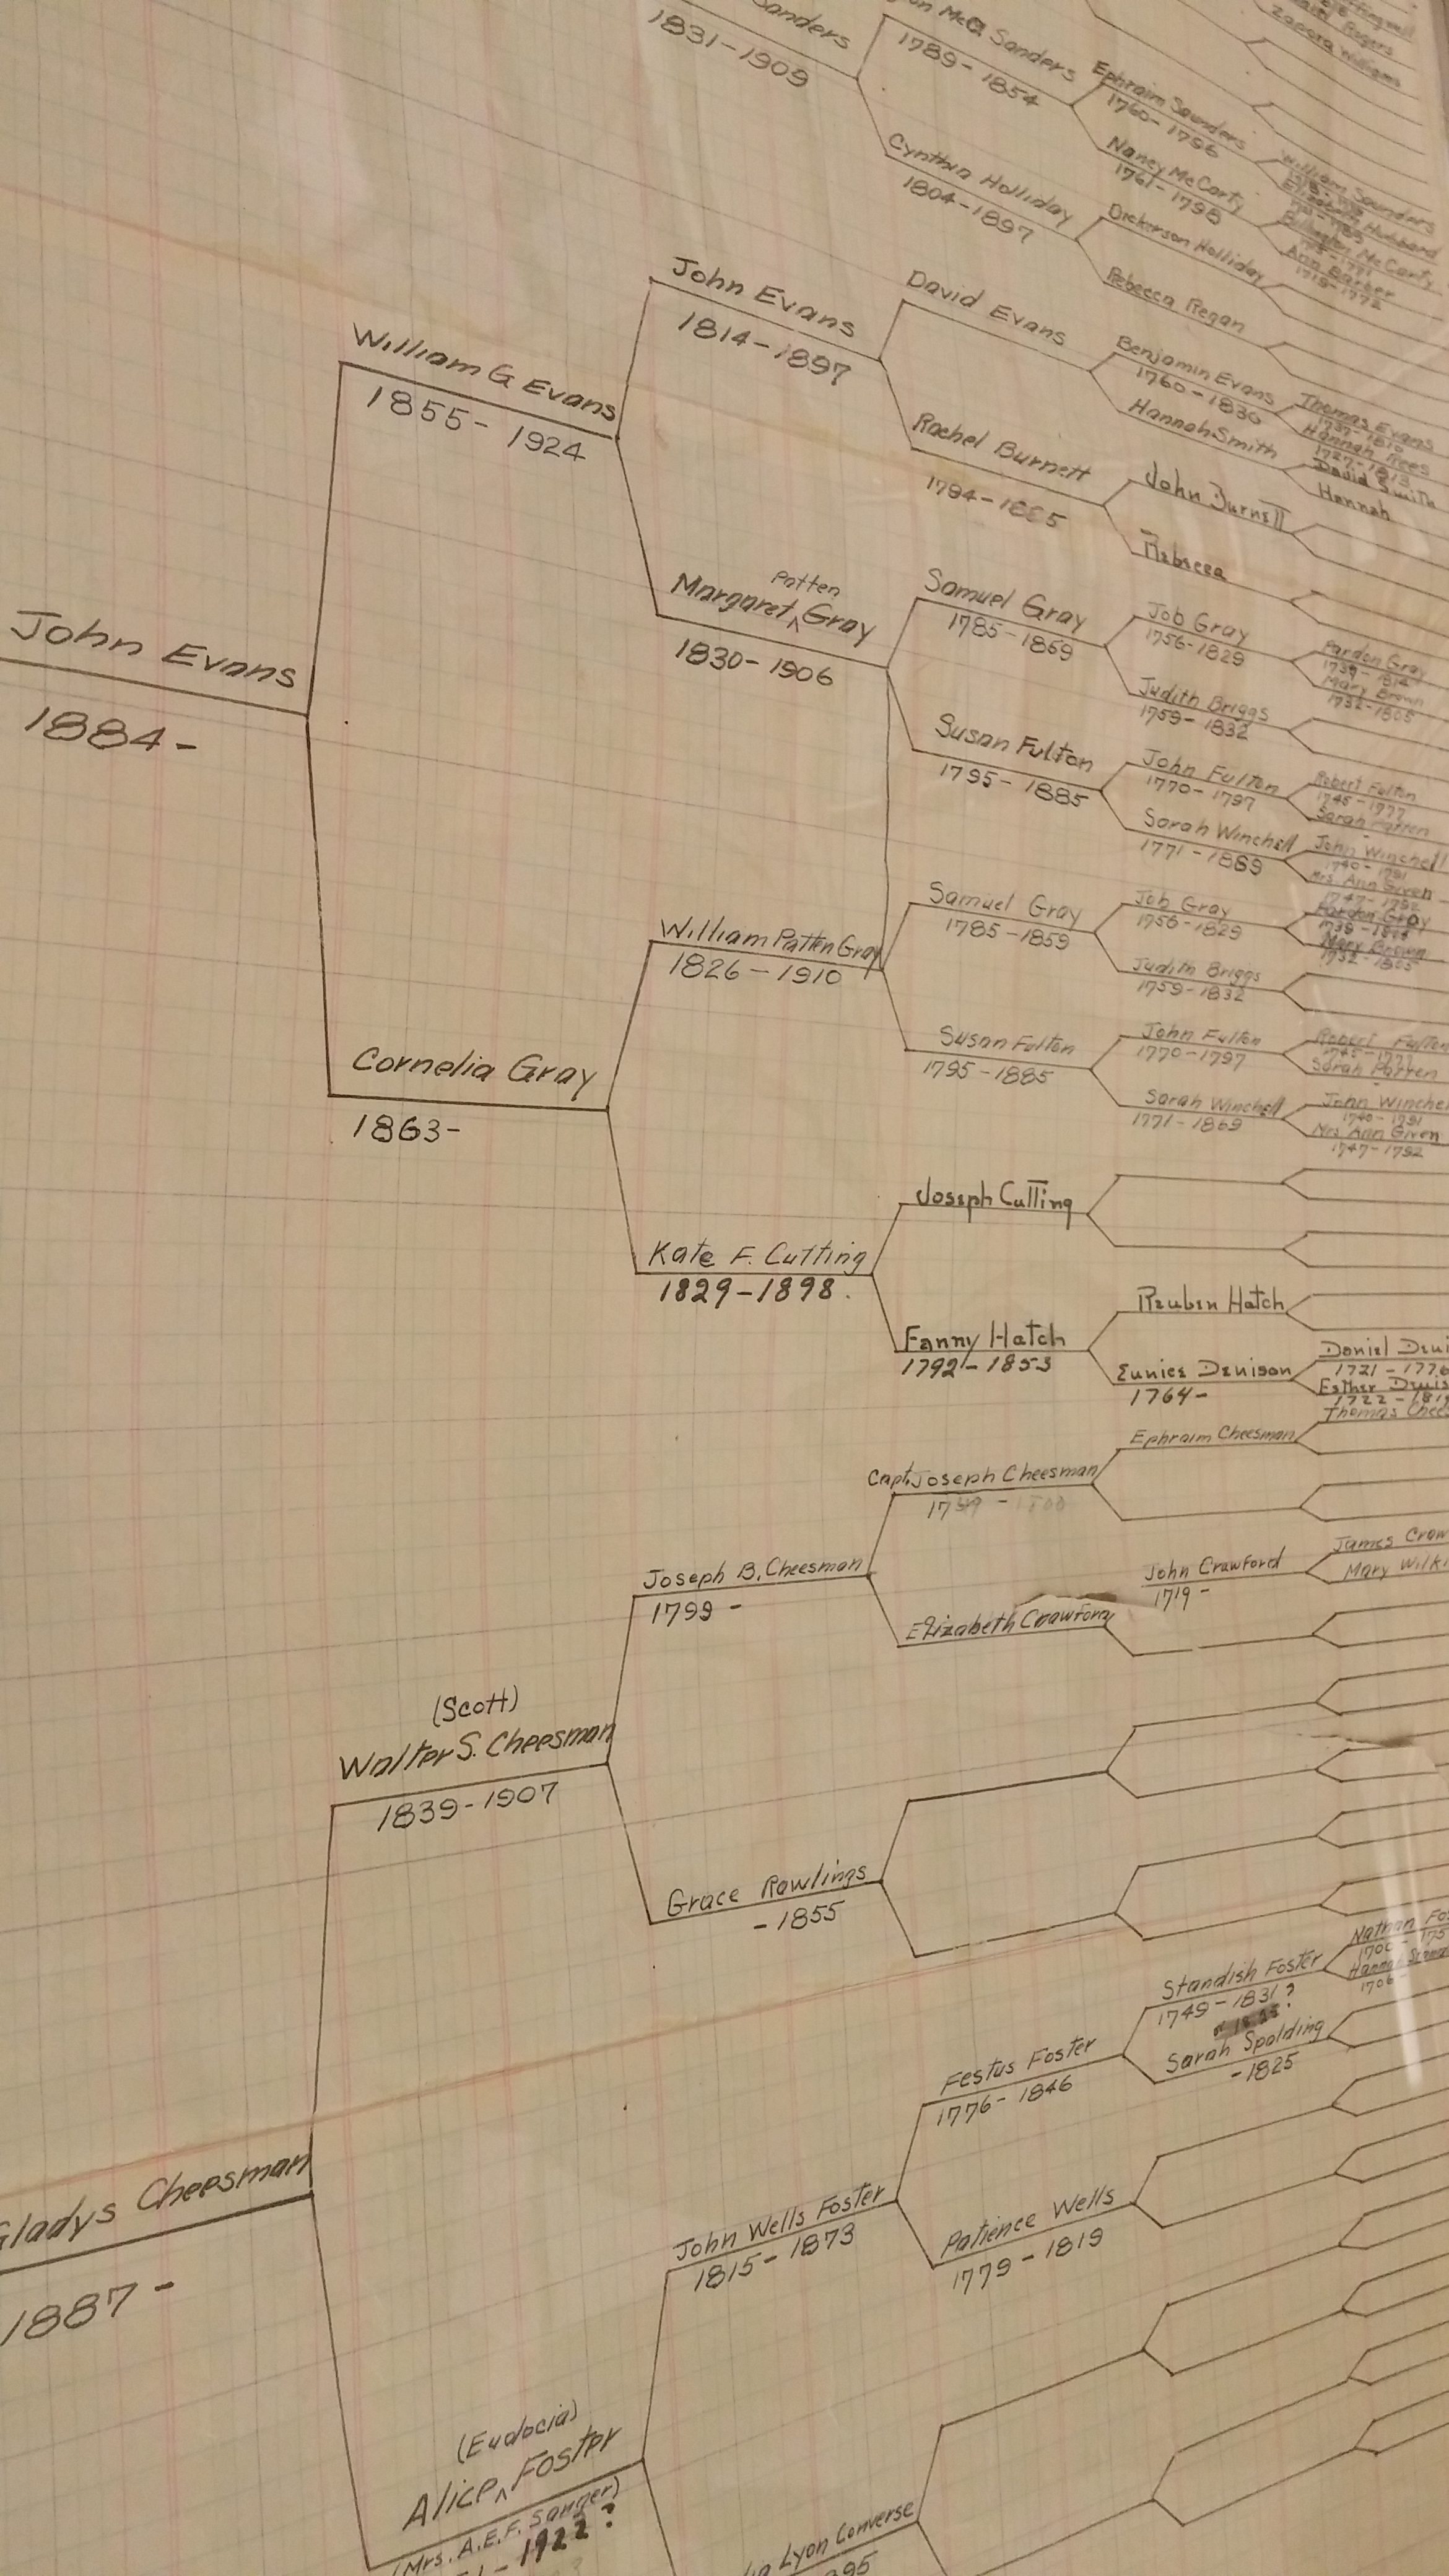 Sanders
1831-1909
Sanders
1789-1854
Ephraim Saunders
1760-1796
Nancy McCarty
1761-1798
William Saunders
Elizabeth Hubbard
McCarty
Ann Barber
1719-1772
Zapora Williams
Rogers
Cynthia Holliday
1804-1897
Dickerson Holliday
Rebecca Regan
John Evans
1884-
William G Evans
1855-1924
John Evans
1814-1897
David Evans
Benjamin Evans
1760-1830
Thomas Evans
Hannah Rees
1727-1813
Hannah Smith
David Smith
Hannah
Rachel Burnett
John Burnett
Rebecca
Patten
Margaret ^ Gray
1830-1906
Samuel Gray
Job Gray
1756-1829
Pardon Gray
Mary Brown
1732-1805
Judith Briggs
1759-1832
Susan Fulton
1795-1885
John Fulton
1770-1797
Robert Fulton
1745-1777
Sarah Patten
Sarah Winchell
1771-1869
John Winchell
1740-1791
Mrs. Ann Given
1747-1792
Cornelia Gray
1863-
William Patten Gray
1826-1910
Samuel Gray
1785-1859
Job Gray
1756-1829
Pardon Gray
Mary Brown
1732-1805
Judith Briggs
1759-1832
Susan Fulton
1795-1885
John Fulton
1770-1797
Robert Fulton
1745-1777
Sarah Patten
Sarah Winchell
1771-1869
John Winchel
1740-1791
Mrs Ann Given
1747-1792
Kate F. Cutting
1829-1898.
Joseph Cutting
Fanny Hatch
1792-1853
Reuben Hatch
Eunice Denison
1764-
Daniel Deni
1721-1776
Esther Denis
1722-181
Gladys Cheesman
1887-
(Scott)
Walter S. Cheesman
1839-1907
Joseph B. Cheesman
1799-
Capt. Joseph Cheesman
Ephraim Cheesman
Thomas Chees
Elizabeth Crawford
John Crawford
1719-
James Craw
Mary Wilki
Grace Rawlings
-1855
(Eudocia)
Alice ^ Foster
(Mrs. A.E.F. Sanger)
-1922?
John Wells Foster
1815-1873
Festus Foster
1776-1846
Standish Foster
1749-1831?
Nathan Fos
Hannah
1706-
Sarah Spalding
-1825
Patience Wells
1779-1819
Lyon Converse